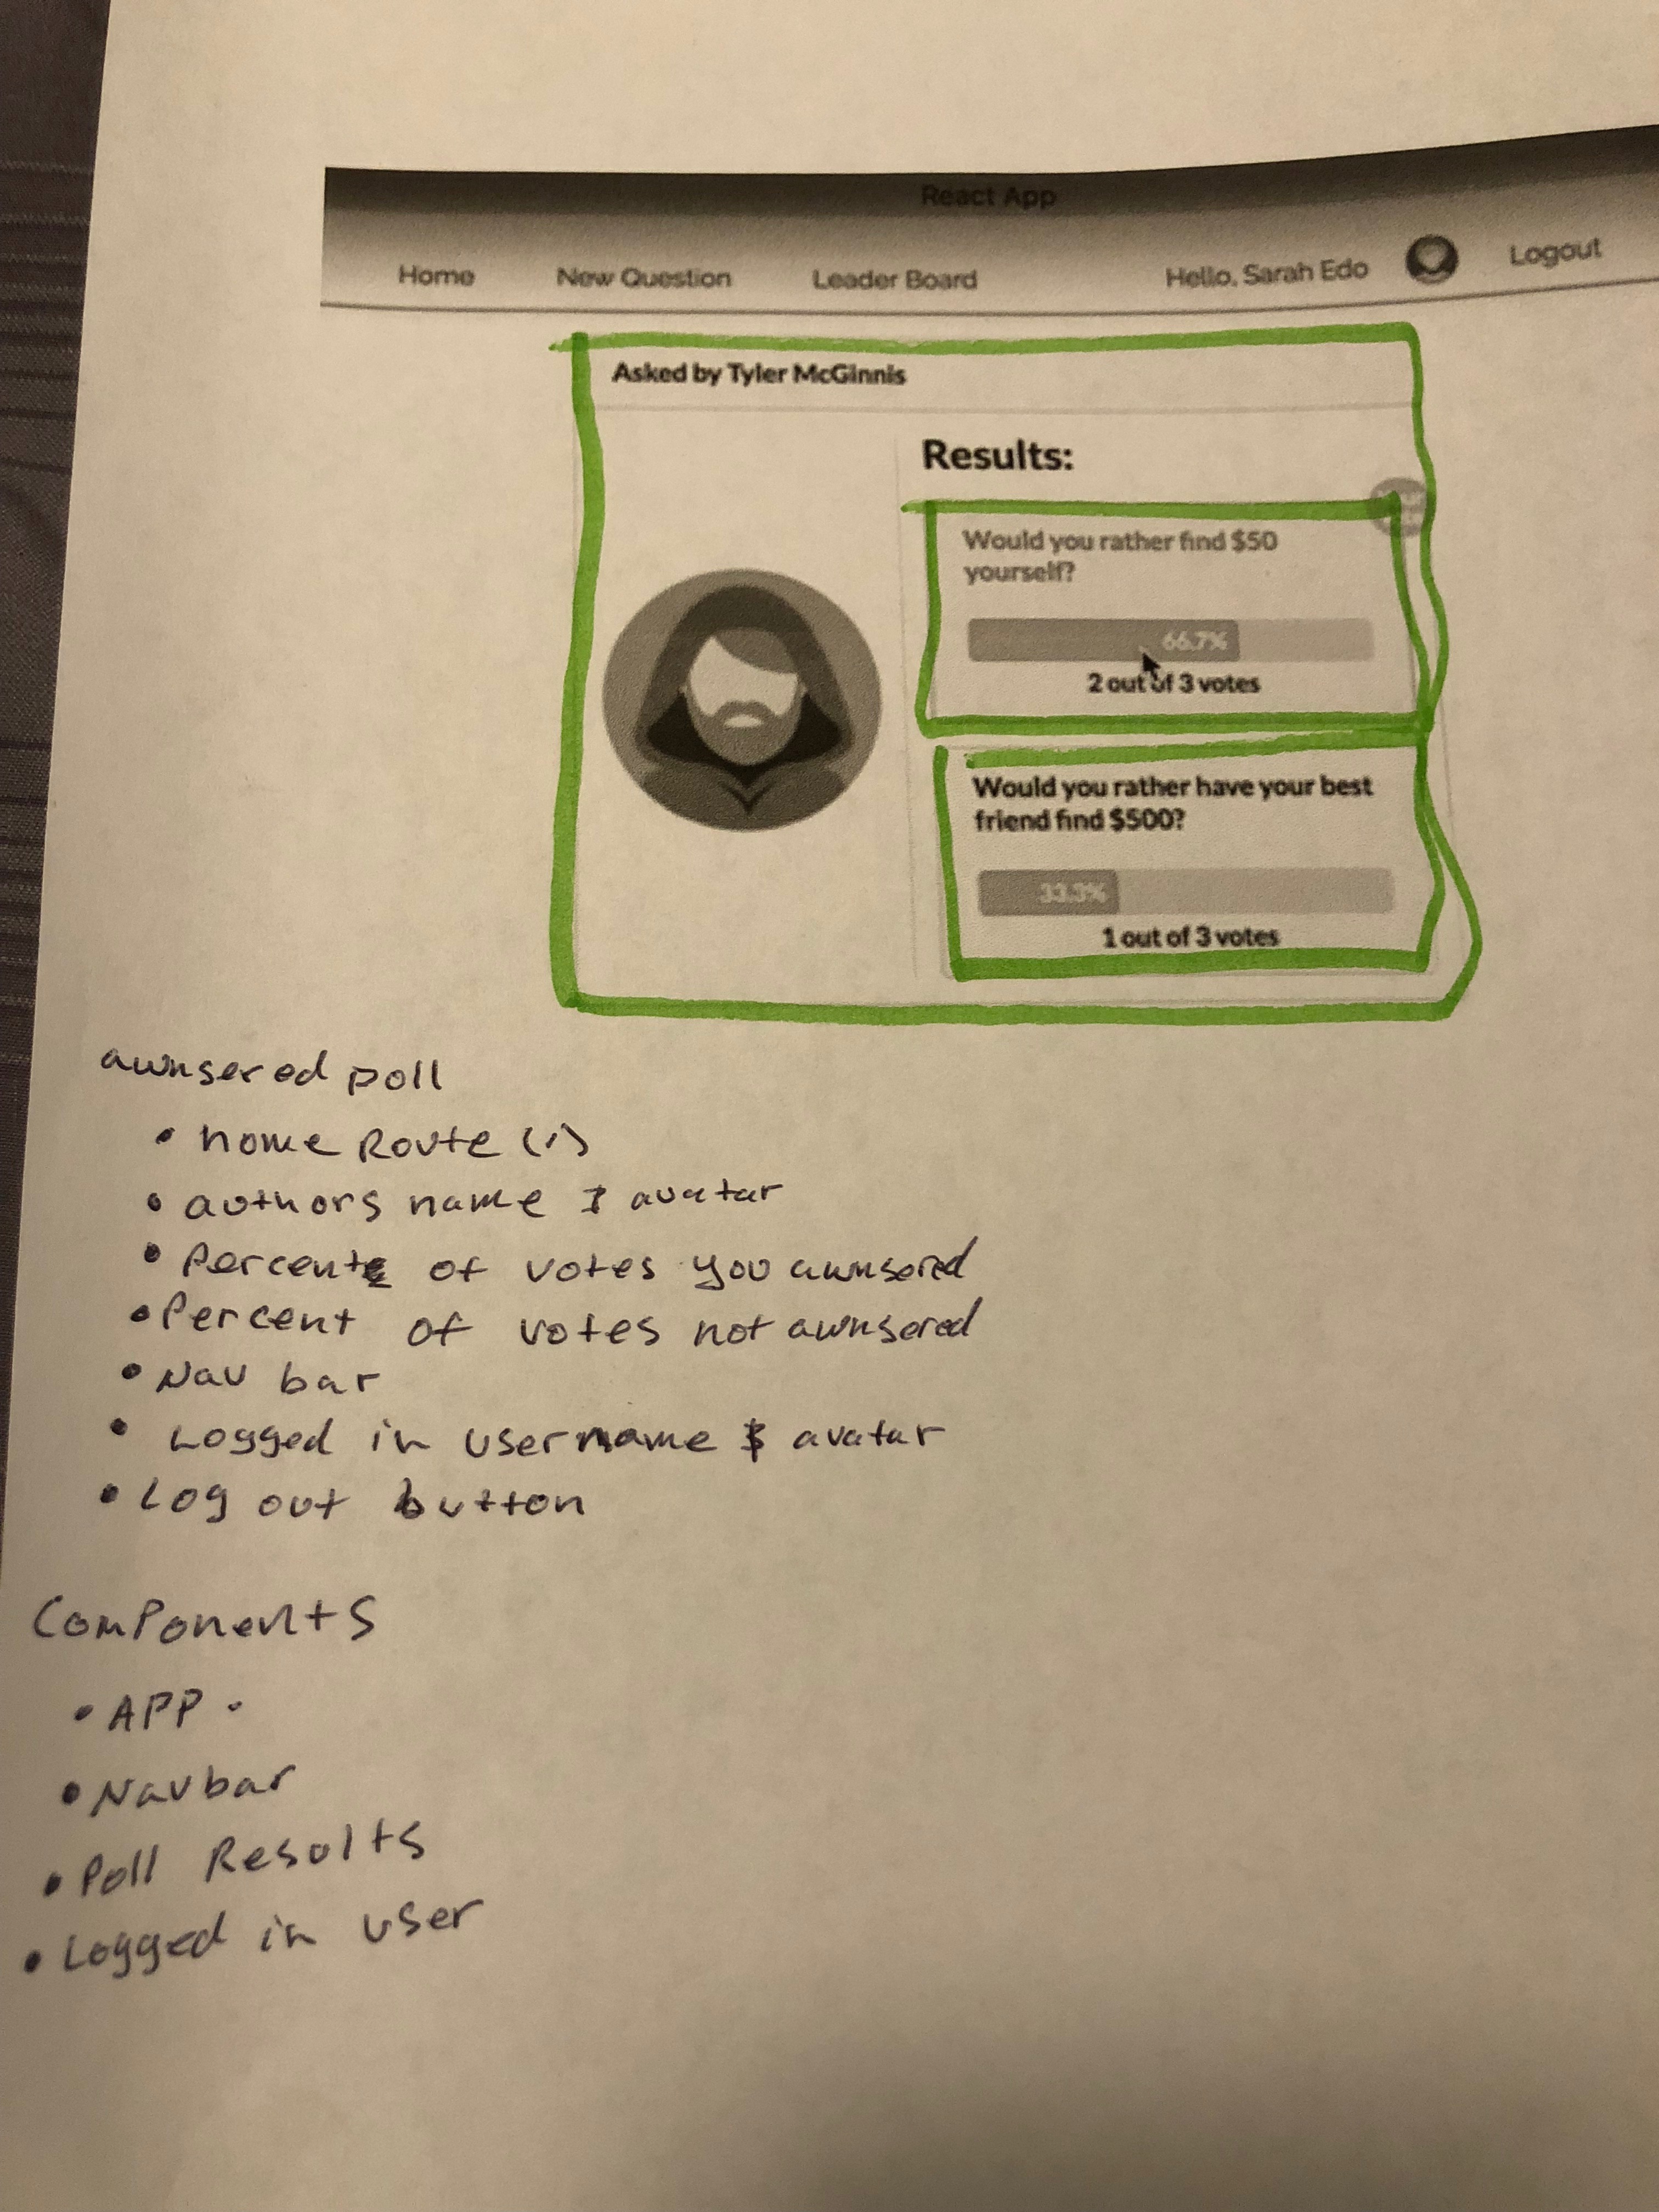 React App
Home New Question Leader Board Hello, Sarah Edo Logout
Asked by Tyler McGinnis
Results:
Would you rather find $50
yourself?
66.7%
2 out of 3 votes
Would you rather have your best
friend find $500?
33.3%
1 out of 3 votes
awnsered poll
• home Route (/)
• authors name & avatar
• Percent of votes you awnsered
• Percent of votes not awnsered
• Nav bar
• Logged in username & avatar
• Log out button
Components
• APP
• Navbar
• Poll Results
• Logged in user